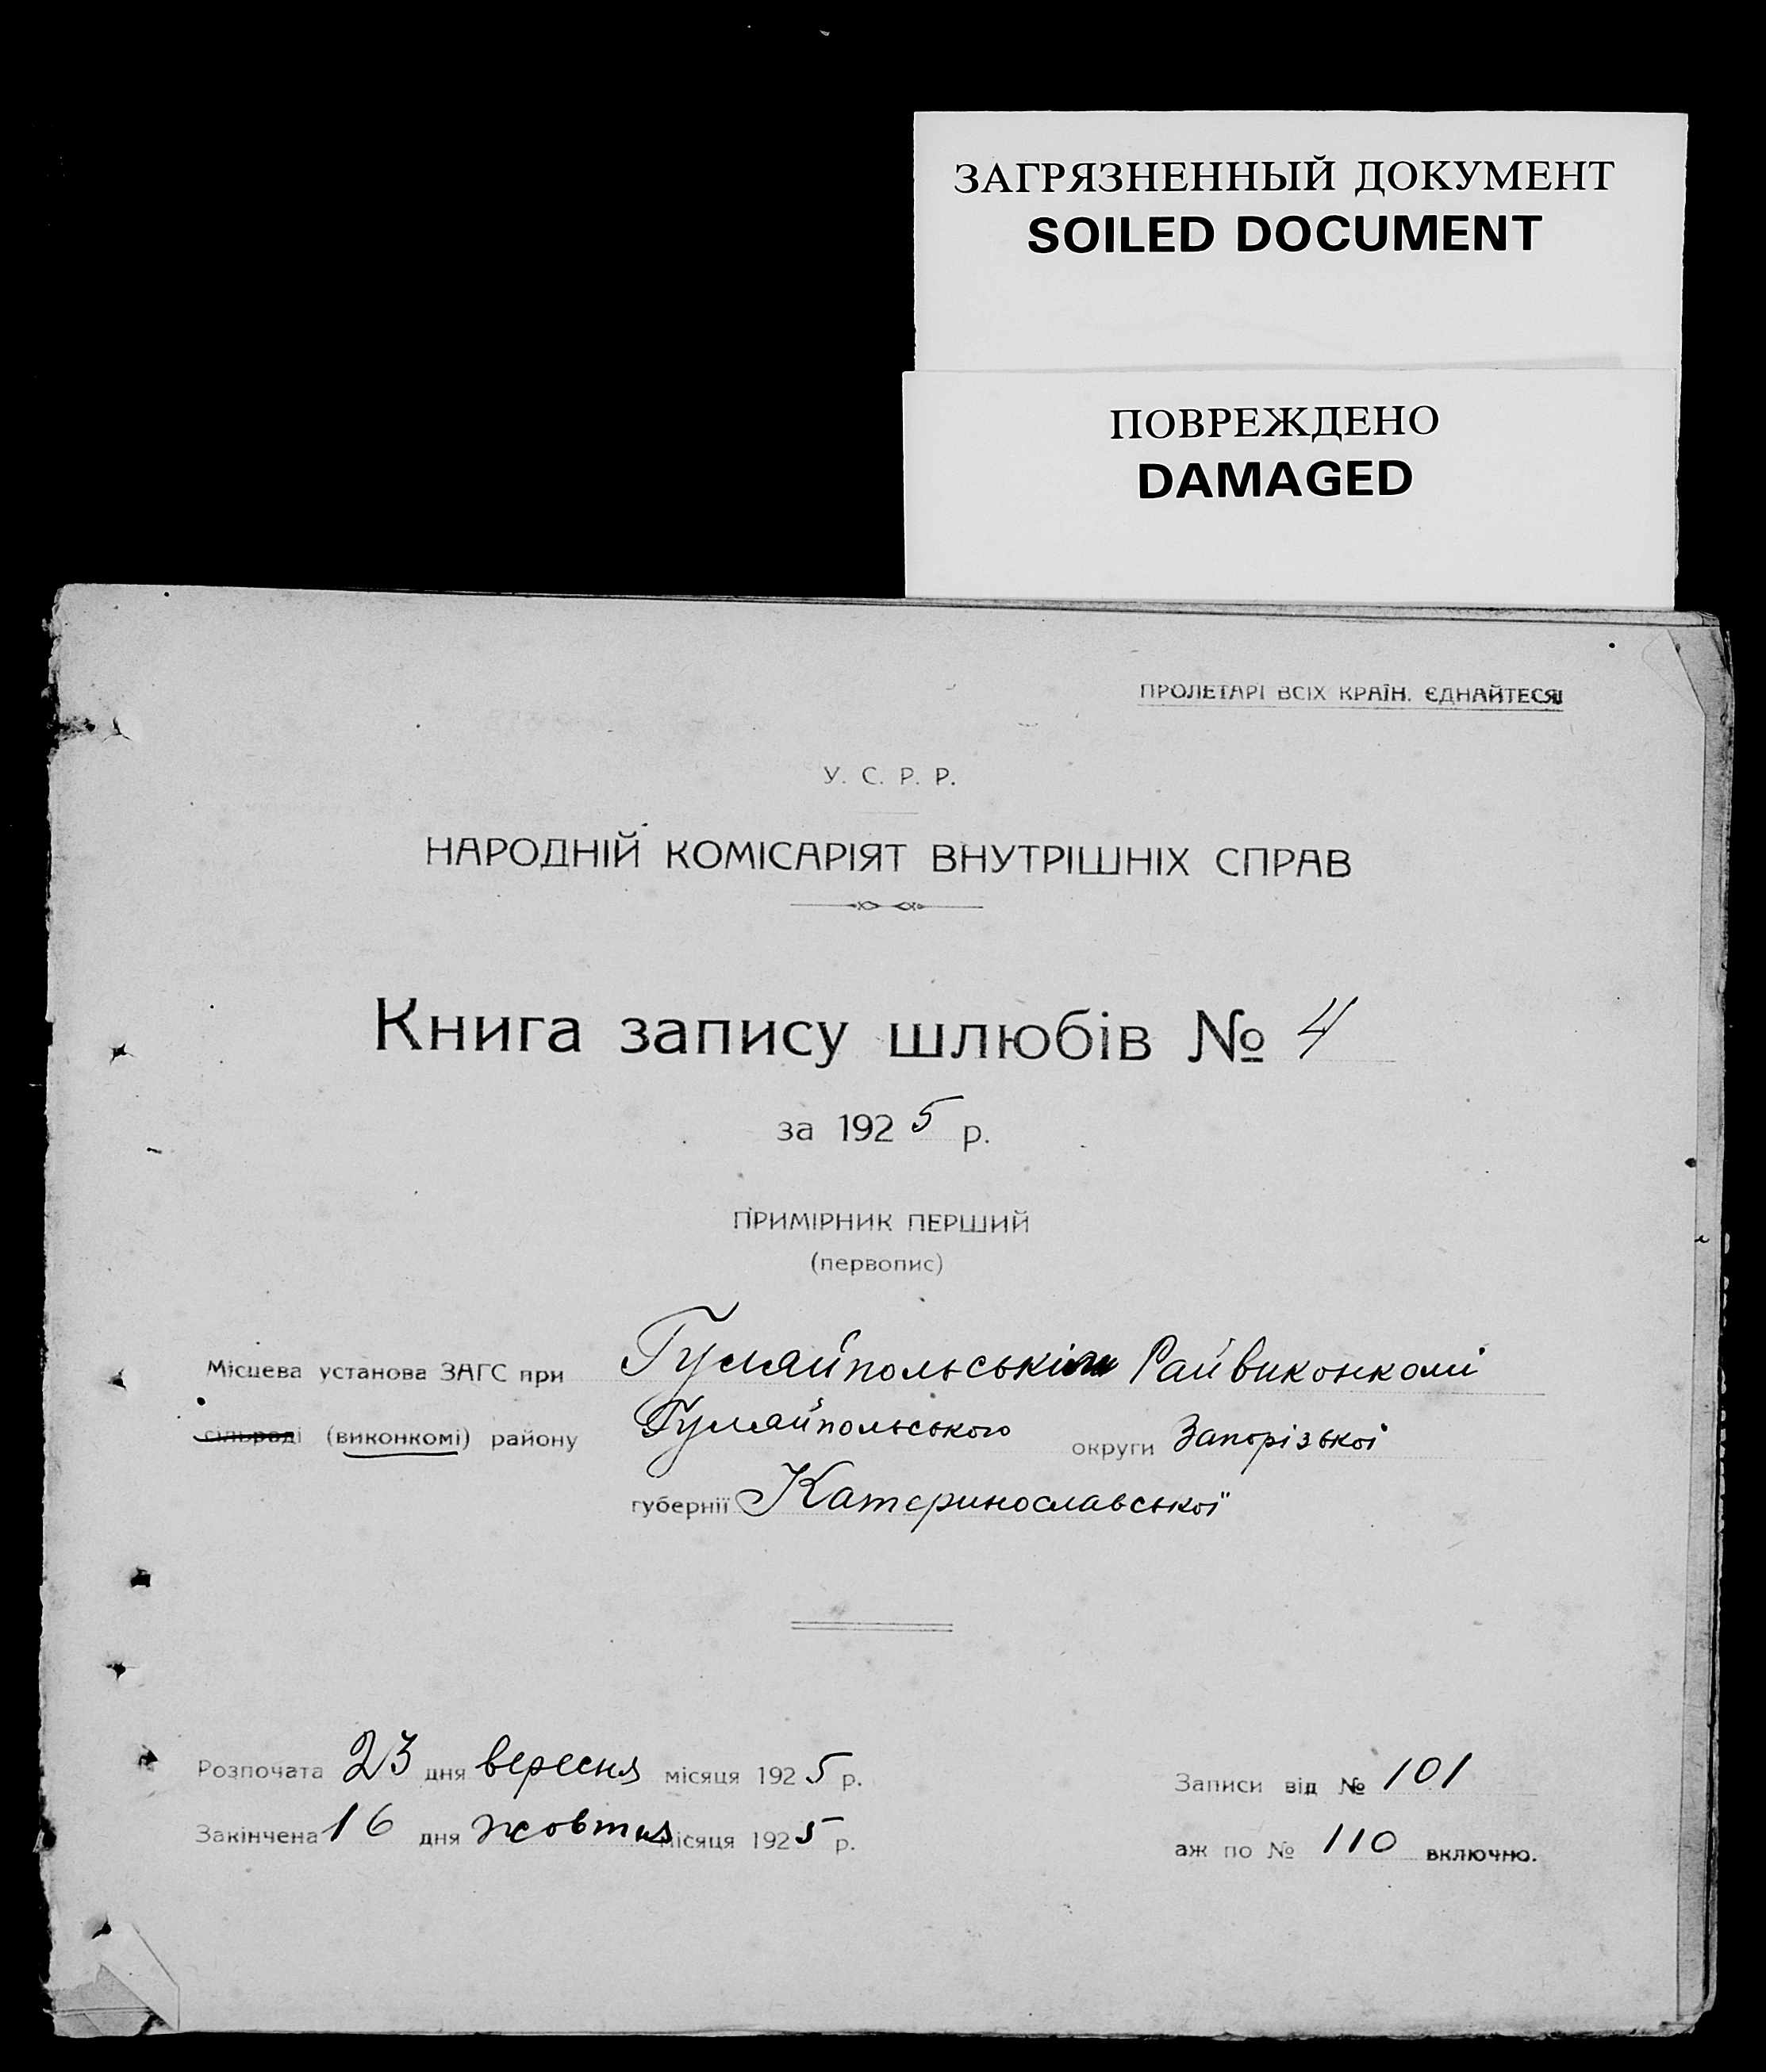 ЗАГРЯЗНЕННЫЙ ДОКУМЕНТ
SOILED DOCUMENT
ПОВРЕЖДЕНО
DAMAGED
ПРОЛЕТАРІ ВСІХ КРАЇН, ЄДНАЙТЕСЯ!
У. С. Р. Р.
НАРОДНІЙ КОМІСАРІЯТ ВНУТРІШНІХ СПРАВ
Книга запису шлюбів № 4
за 1925 р.
ПРИМІРНИК ПЕРШИЙ
(первопис)
Місцева установа ЗАГС при Гуляйпольськім Райвиконкомі
сільраді (виконкомі) району Гуляйпольського округи Запорізької
губернії Катеринославської
Розпочата 23 дня вересня місяця 1925 р. Записи від № 101
Закінчена 16 дня жовтня місяця 1925 р. аж по № 110 включно.